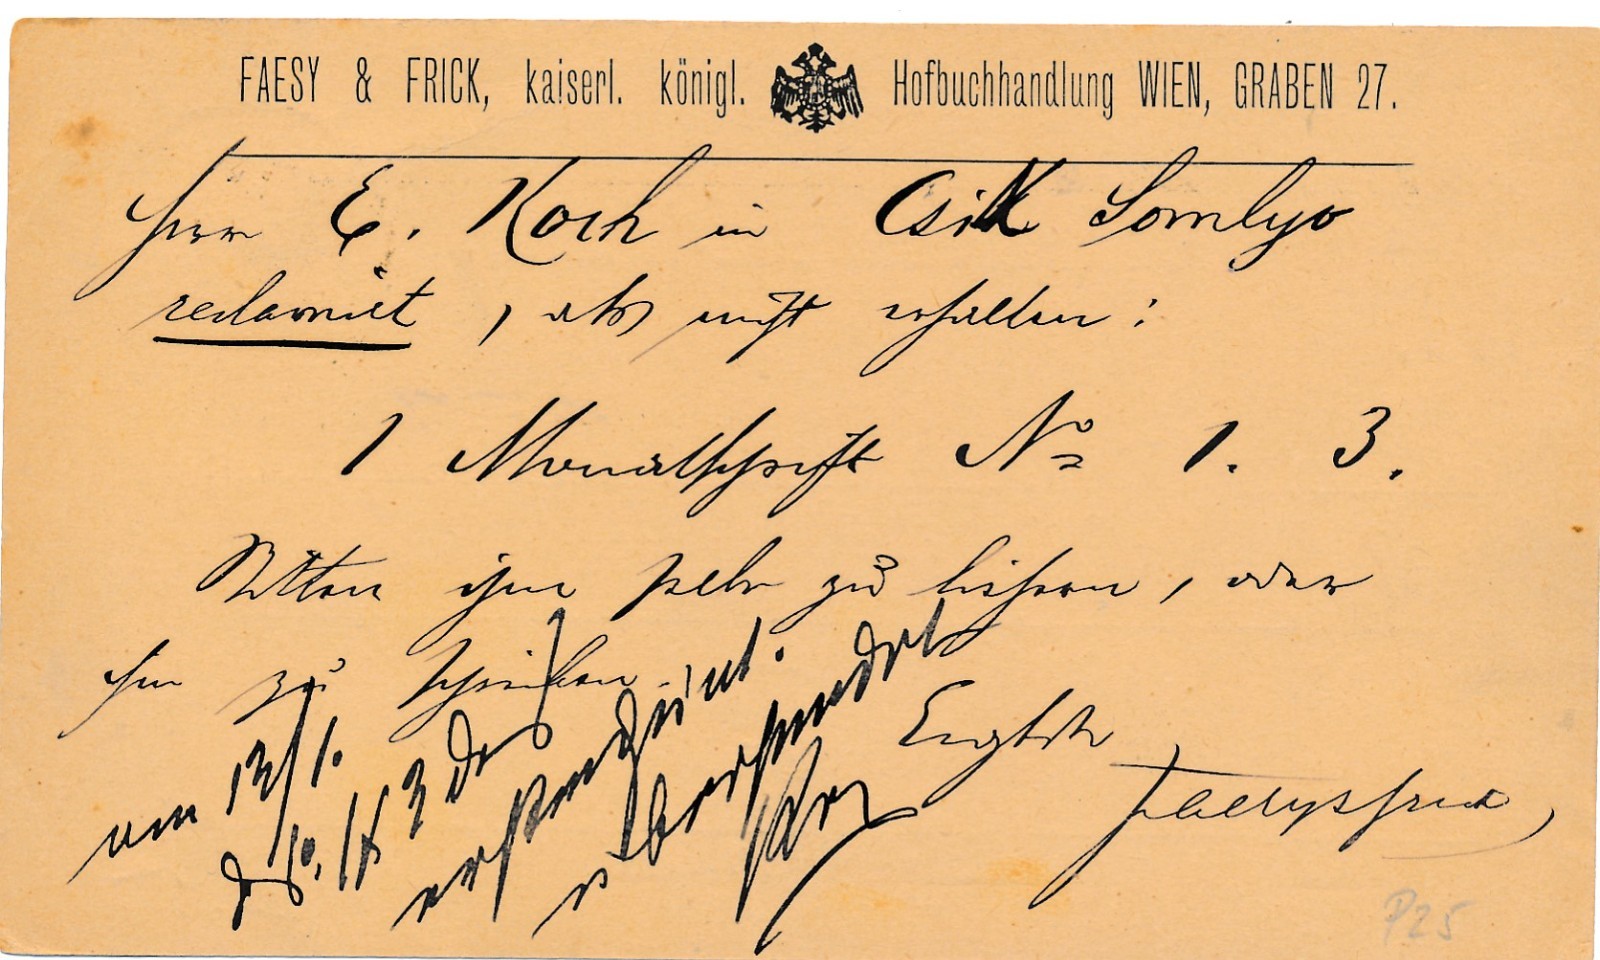 FAESY & FRICK, kaiserl. königl. Hofbuchhandlung WIEN, GRABEN 27.
Herrn E. Koch in Csik Somlyo
reclamirt, als nicht erhalten:
1 Monatschrift No 1. 3.
Bitten ihm selbe zu liefern, oder
ihm zu schreiben.
am 13/1.
No. 1 & 3 des
expedirt.
übersendet
Faesy & Frick
P25